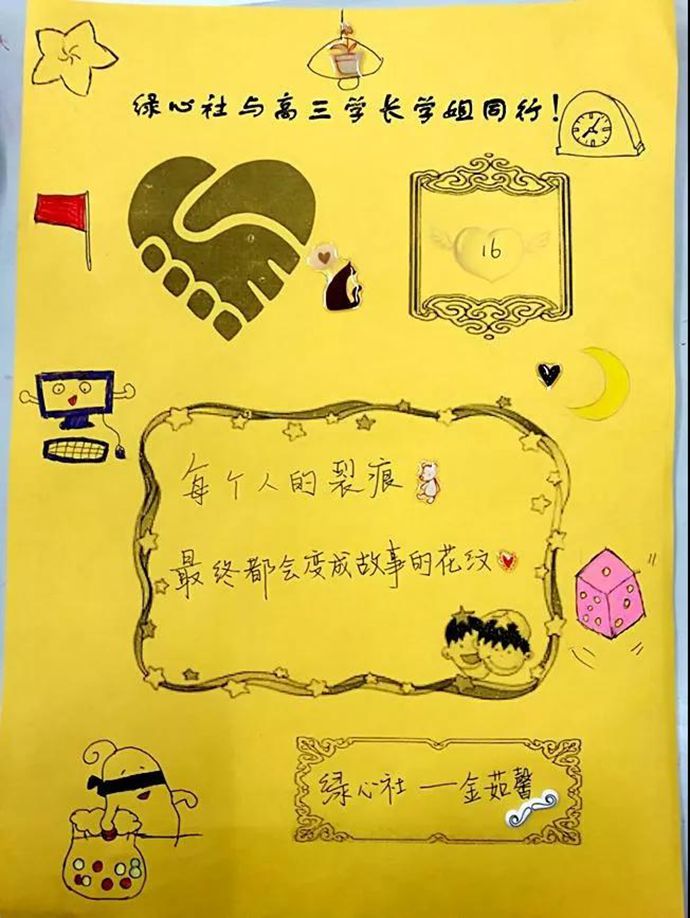 绿心社与高三学长学姐同行!
16
每个人的裂痕
最终都会变成故事的花纹
绿心社 — 金茹馨